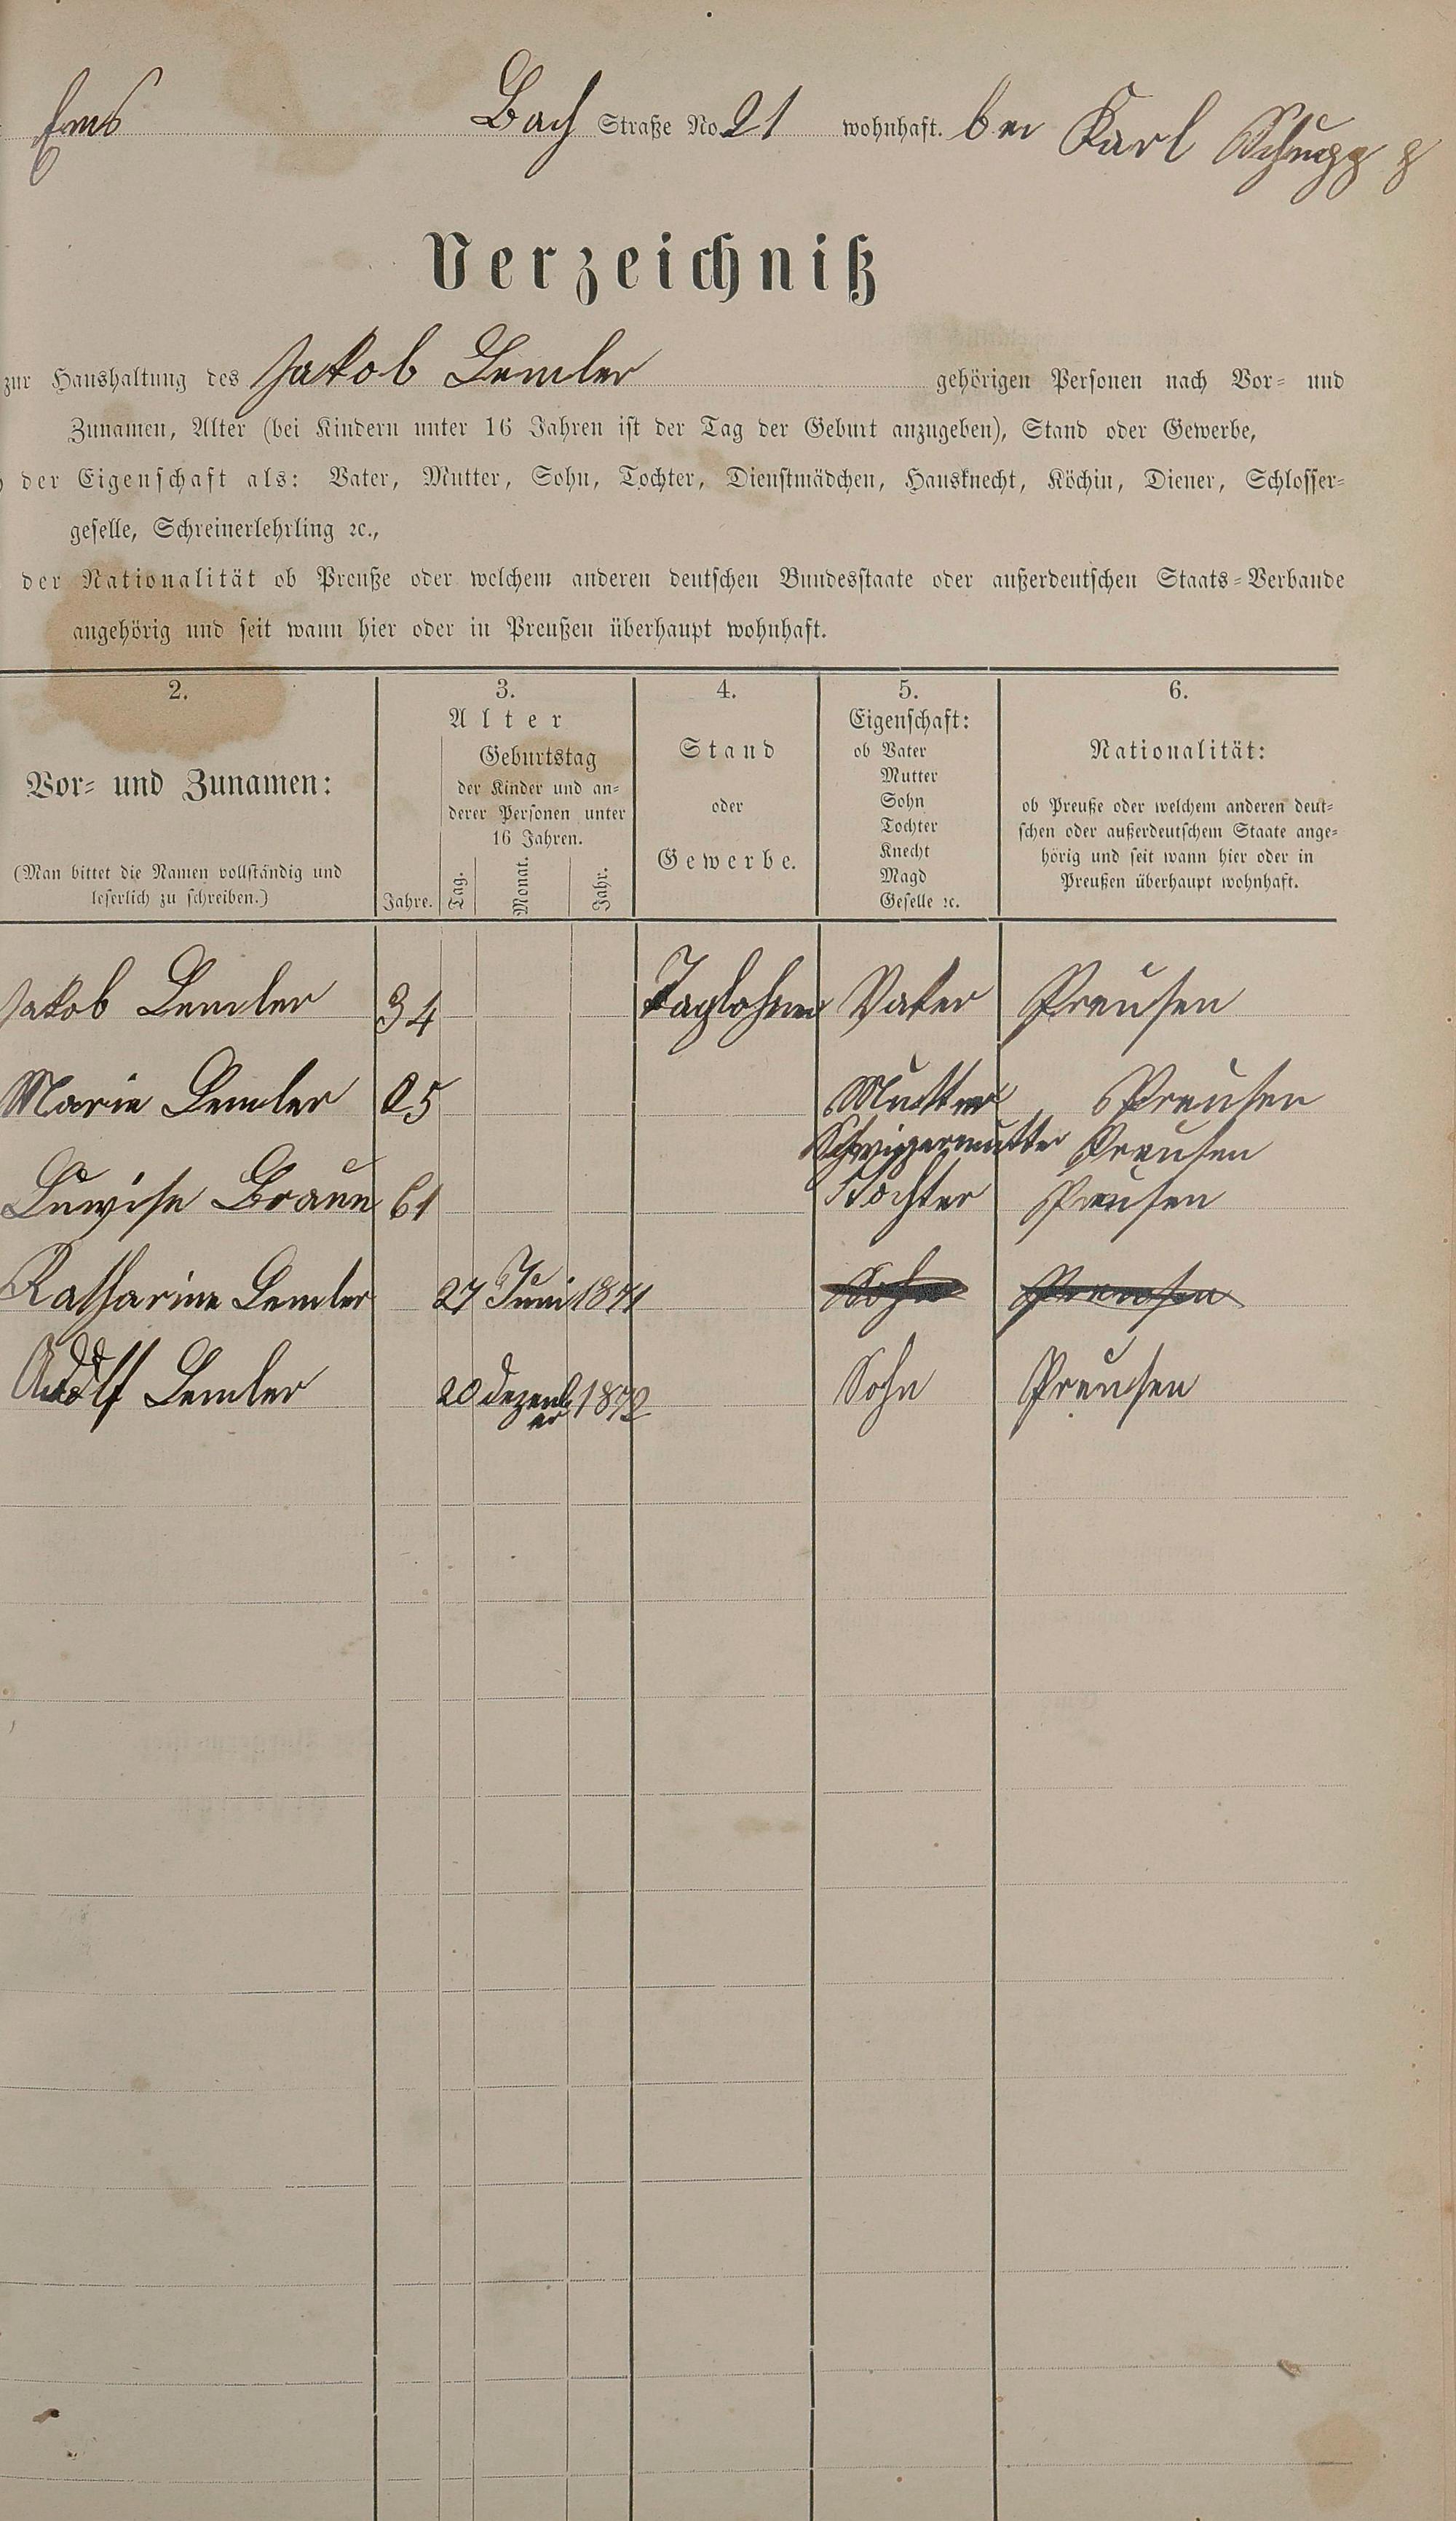 Ems Bach Straße No 21 wohnhaft. bei Karl
Verzeichniß
zur Haushaltung des Jakob Lemler gehörigen Personen nach Vor- und
Zunamen, Alter (bei Kindern unter 16 Jahren ist der Tag der Geburt anzugeben), Stand oder Gewerbe,
der Eigenschaft als: Vater, Mutter, Sohn, Tochter, Dienstmädchen, Hausknecht, Köchin, Diener, Schlosser-
geselle, Schreinerlehrling ꝛc.,
der Nationalität ob Preuße oder welchem anderen deutschen Bundesstaate oder außerdeutschen Staats-Verbande
angehörig und seit wann hier oder in Preußen überhaupt wohnhaft.
2.
Vor- und Zunamen:
(Man bittet die Namen vollständig und
leserlich zu schreiben.)
3.
Alter
Jahre.
Geburtstag
der Kinder und an-
derer Personen unter
16 Jahren.
Tag. Monat. Jahr.
4.
Stand
oder
Gewerbe.
5.
Eigenschaft:
ob Vater
Mutter
Sohn
Tochter
Knecht
Magd
Geselle ꝛc.
6.
Nationalität:
ob Preuße oder welchem anderen deut-
schen oder außerdeutschem Staate ange-
hörig und seit wann hier oder in
Preußen überhaupt wohnhaft.
Jakob Lemler 34 Taglohner Vater Preusen
Marie Lemler 25 Mutter Preusen
Schwigermutter Preusen
Luwise Braun 61 Tochter Preusen
Katharine Lemler 27 Juni 1871 Sohn Preusen
Adolf Lemler 20 dezemb
er 1872 Sohn Preusen